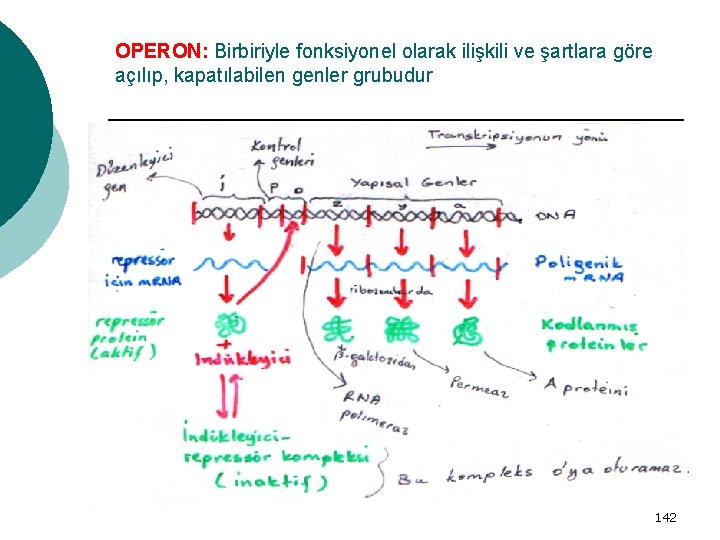 OPERON: Birbiriyle fonksiyonel olarak ilişkili ve şartlara göre
açılıp, kapatılabilen genler grubudur
Transkripsiyonun yönü
Kontrol
genleri
Düzenleyici
gen
i
p
o
Yapısal Genler
z
y
a
DNA
repressör
için mRNA
Poligenik
mRNA
ribozomlarda
repressör
protein
(aktif)
+
İndükleyici
Kodlanmış
proteinler
β-galaktozidan
Permeaz
A proteini
RNA
polimeraz
İndükleyici-
repressör kompleksi
(inaktif)
Bu kompleks o'ya oturamaz.
142